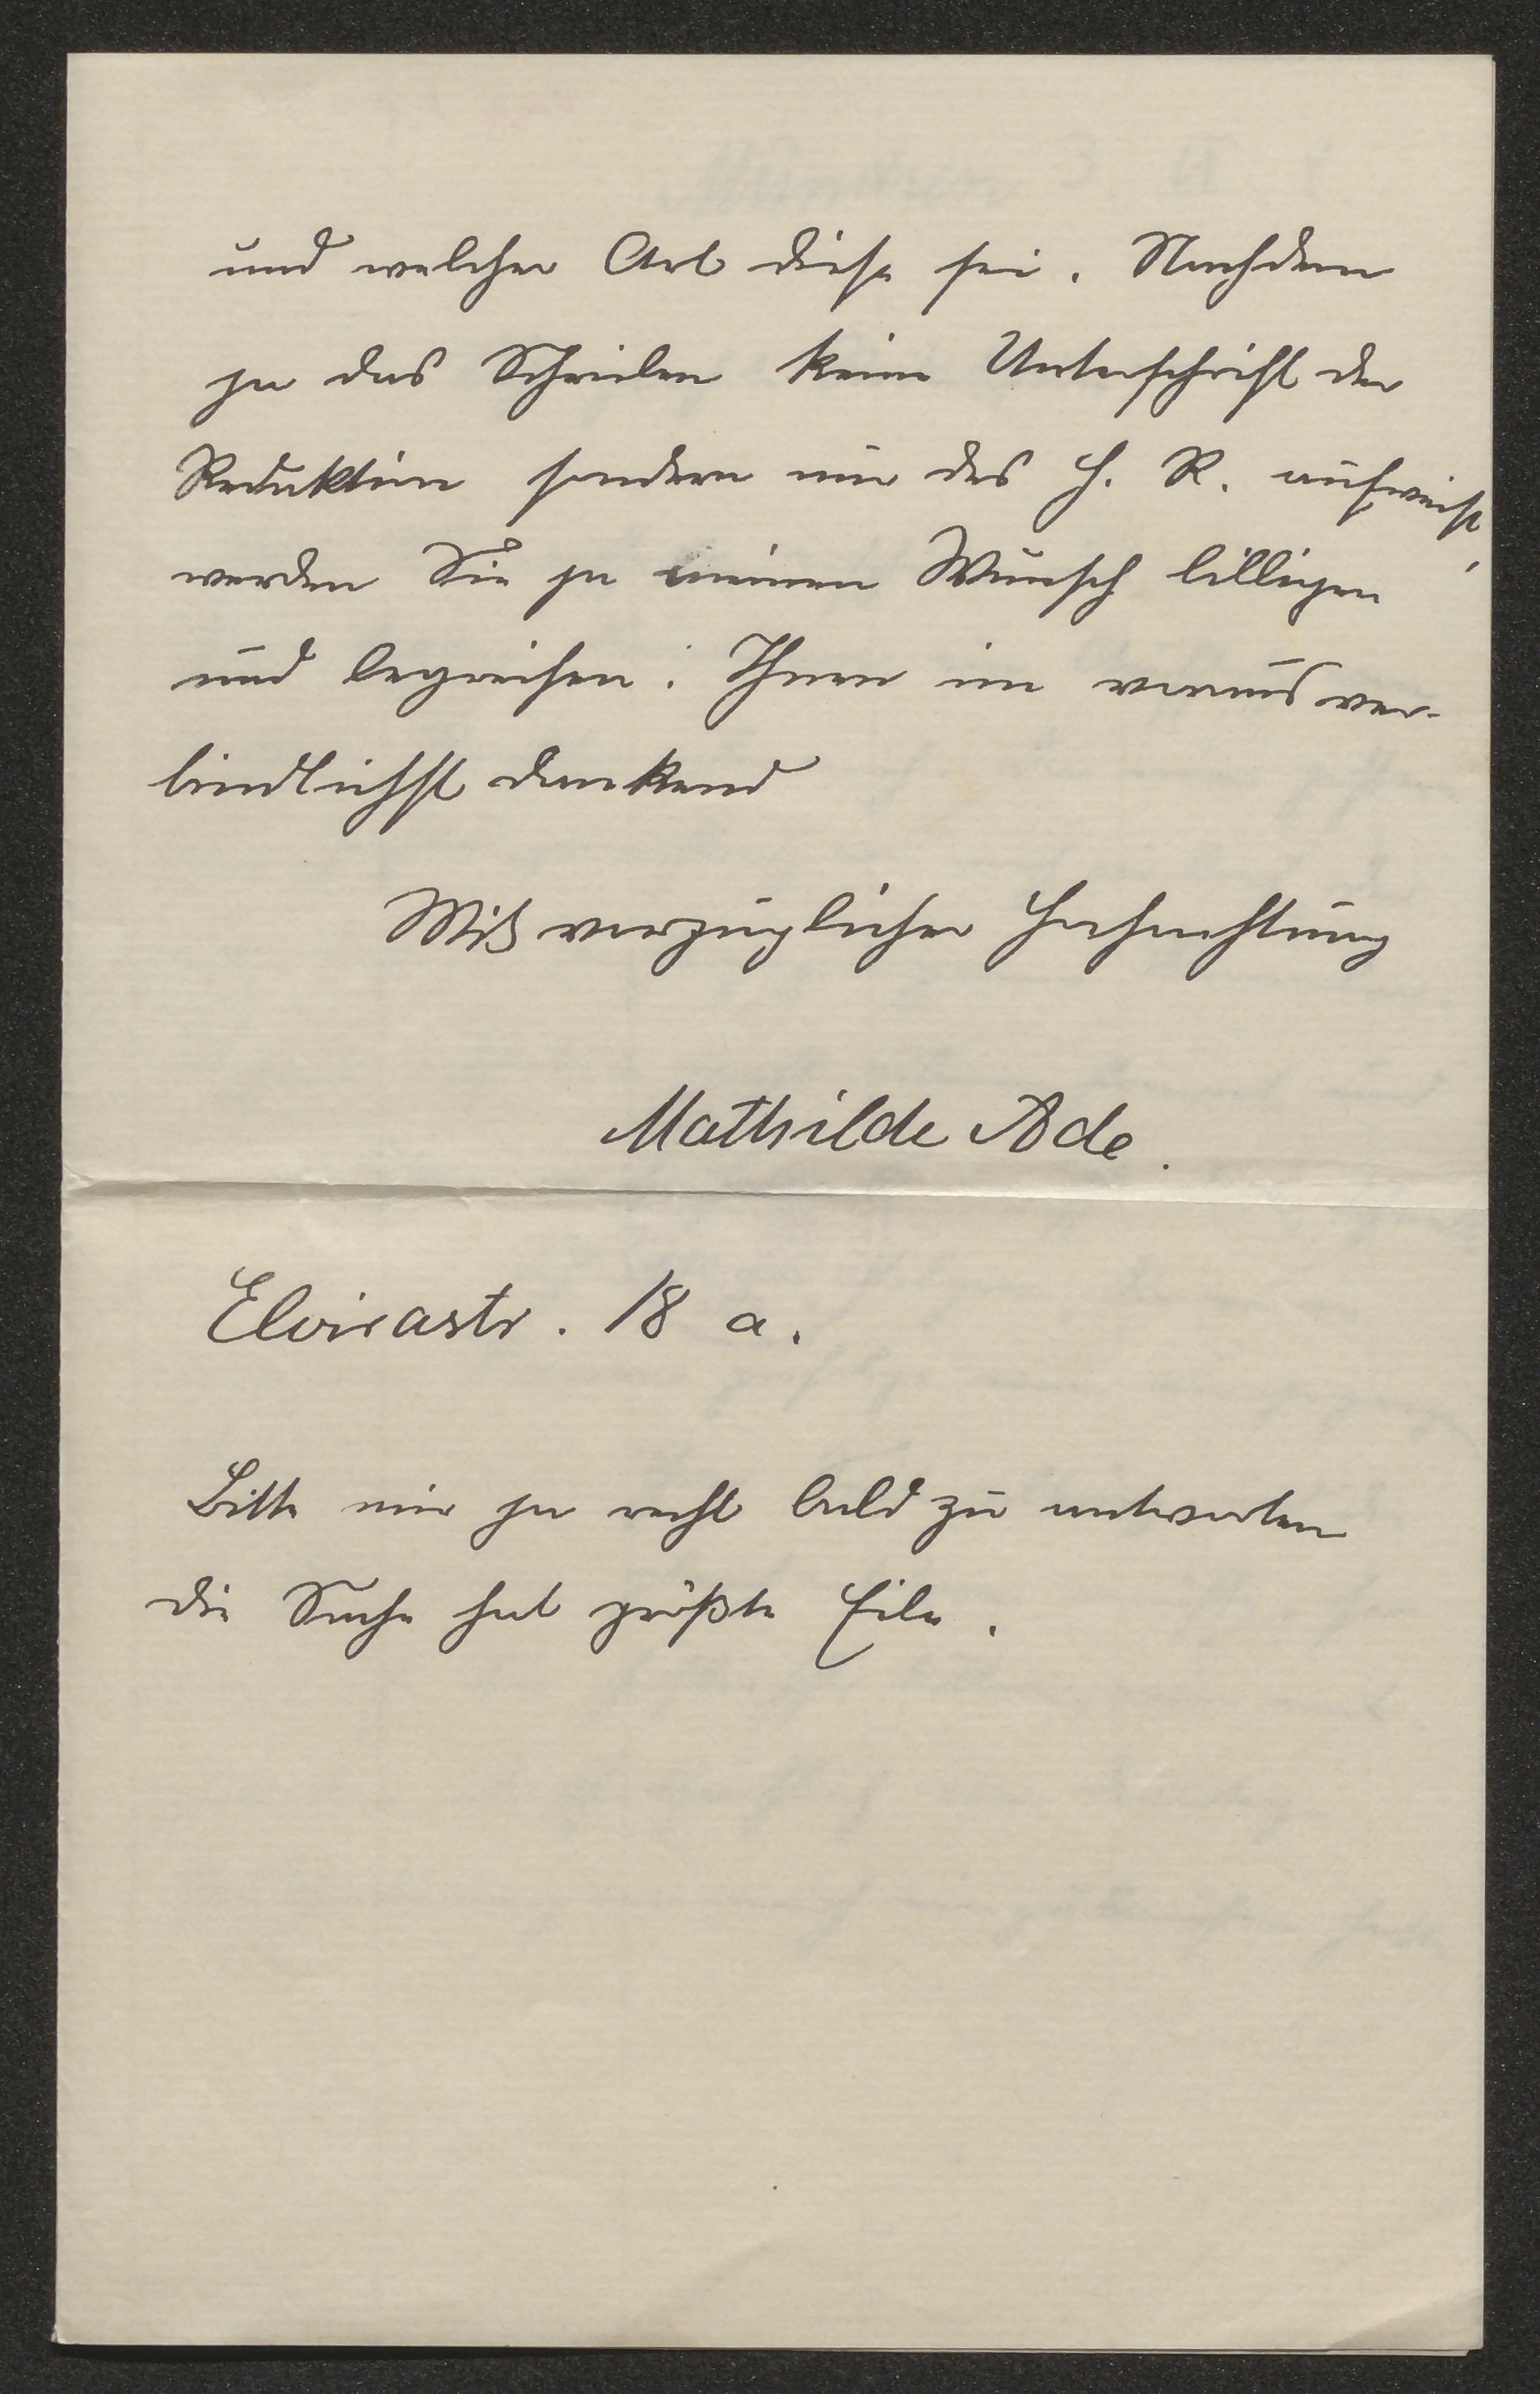 und welcher Art diese sei. Nachdem
ja das Schreiben keine Unterschrift der
Redaktion sondern nur des H. R. aufweist,
werden Sie ja meinen Wunsch billigen
und begreifen. Ihnen im voraus ver-
bindlichst dankend
Mit vorzüglicher Hochachtung
Mathilde Ade.
Elvirastr. 18 a.
Bitte mir ja recht bald zu antworten
die Sache hat größte Eile.